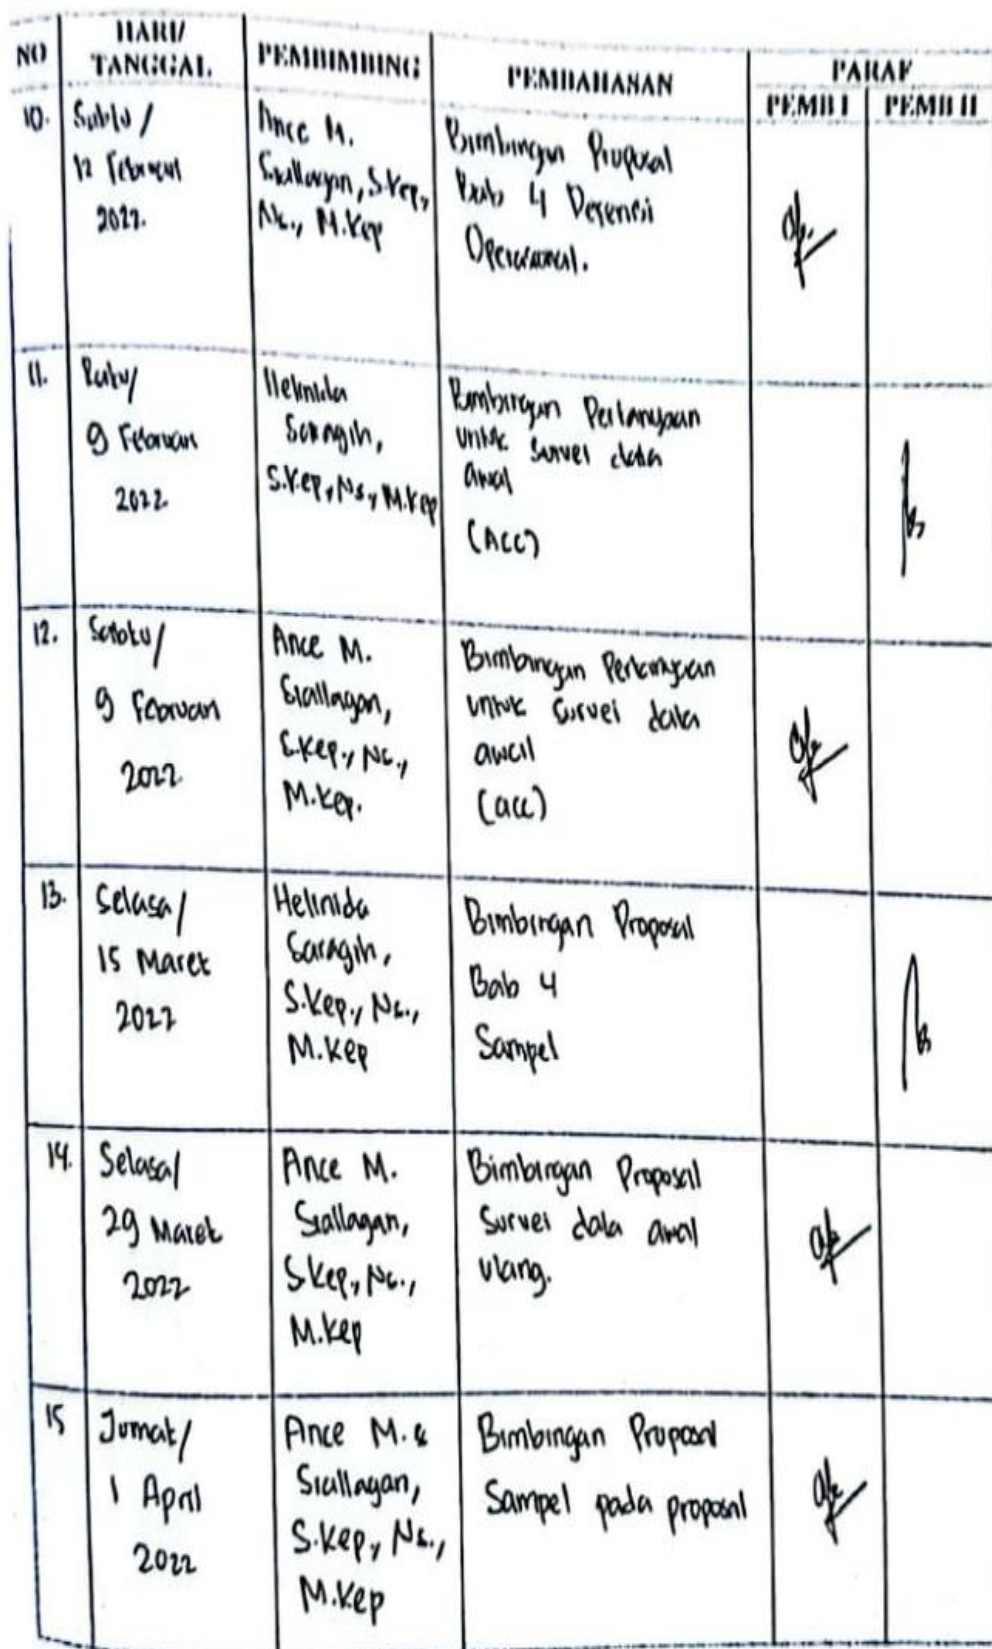 NO
HARI/
TANGGAL
PEMBIMBING
PEMBAHASAN
PARAF
PEMB I
PEMB II
10.
Sabtu /
12 Februari
2022.
Ance M.
Siallagan, S.Kep.,
Ns., M.Kep
Bimbingan Proposal
Bab 4 Defenisi
Operasional.
11.
Rabu/
9 Februari
2022
Helinida
Saragih,
S.Kep., Ns., M.Kep
Bimbingan Pertanyaan
untuk Survei data
awal
(Acc)
12.
Sabtu/
9 Februari
2022
Ance M.
Siallagan,
S.Kep., Ns.,
M.Kep.
Bimbingan Pertanyaan
untuk Survei data
awal
(acc)
13.
Selasa/
15 Maret
2022
Helinida
Saragih,
S.Kep., Ns.,
M.Kep
Bimbingan Proposal
Bab 4
Sampel
14.
Selasa/
29 Maret
2022
Ance M.
Siallagan,
S.Kep., Ns.,
M.Kep
Bimbingan Proposal
Survei data awal
ulang.
15
Jumat/
1 April
2022
Ance M.
Siallagan,
S.Kep., Ns.,
M.Kep
Bimbingan Proposal
Sampel pada proposal